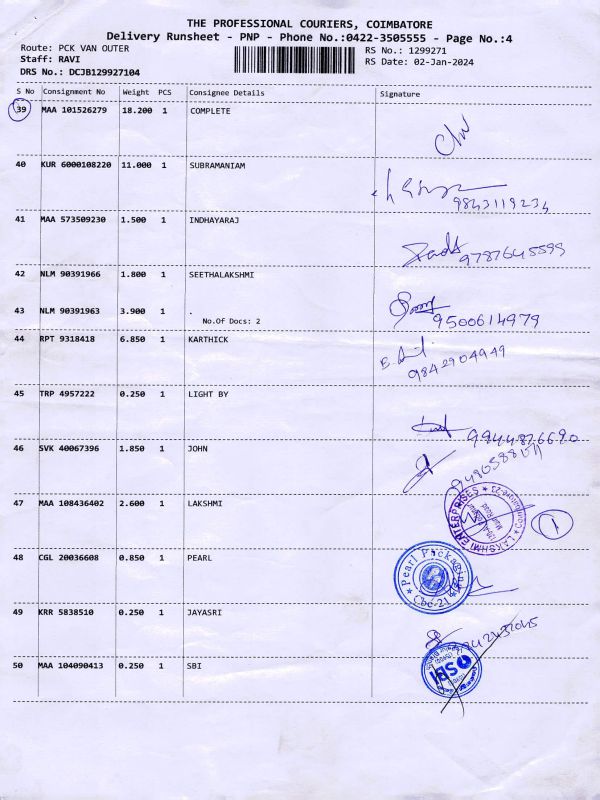 THE PROFESSIONAL COURIERS, COIMBATORE
Delivery Runsheet - PNP - Phone No.:0422-3505555 - Page No.:4
Route: PCK VAN OUTER
RS No.: 1299271
Staff: RAVI
RS Date: 02-Jan-2024
DRS No.: DCJB129927104
S No Consignment No Weight PCS Consignee Details Signature
39 MAA 101526279 18.200 1 COMPLETE
40 KUR 6000108220 11.000 1 SUBRAMANIAM
9843119234
41 MAA 573509230 1.500 1 INDHAYARAJ
9787645599
42 NLM 90391966 1.800 1 SEETHALAKSHMI
43 NLM 90391963 3.900 1 .
No.Of Docs: 2
9500614979
44 RPT 9318418 6.850 1 KARTHICK
9842904949
45 TRP 4957222 0.250 1 LIGHT BY
9944826690
46 SVK 40067396 1.850 1 JOHN
47 MAA 108436402 2.600 1 LAKSHMI
LAKSHMI ENTERPRISES
1
48 CGL 20036608 0.850 1 PEARL
Pearl Packaging
Cbe-21
49 KRR 5838510 0.250 1 JAYASRI
50 MAA 104090413 0.250 1 SBI
SBI